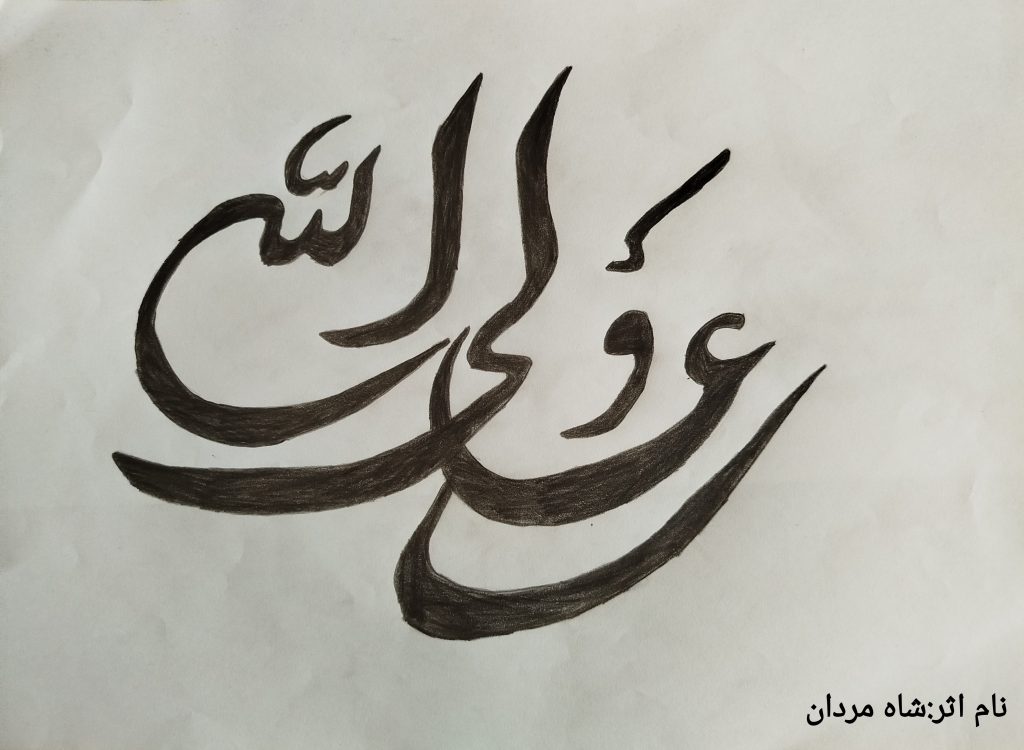 علی ولی الله
نام اثر:شاه مردان